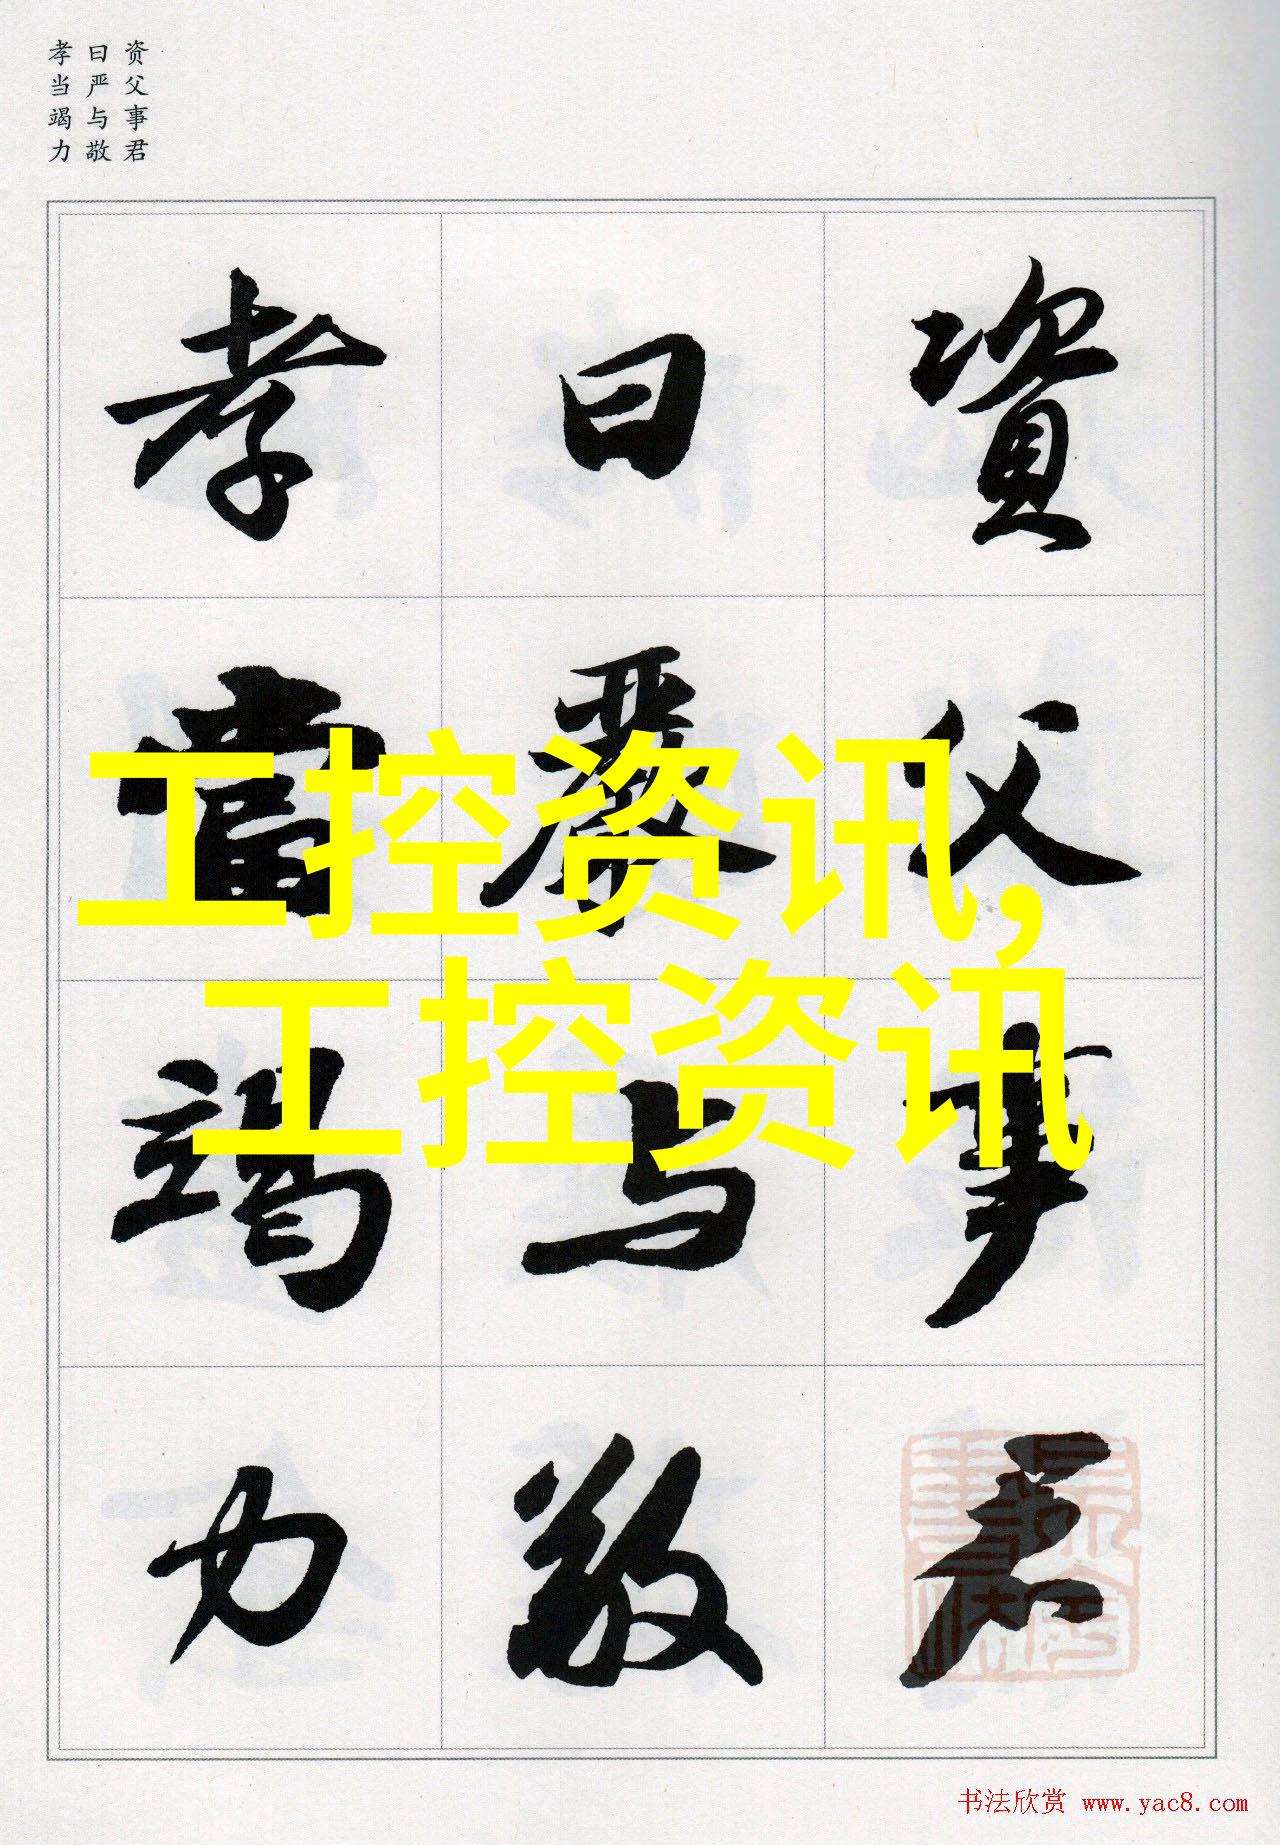 资父事君
曰严与敬
孝当竭力
資父事君
曰嚴与敬
孝當竭力
工控资讯,
工控资讯
书法欣赏 www.yac8.com